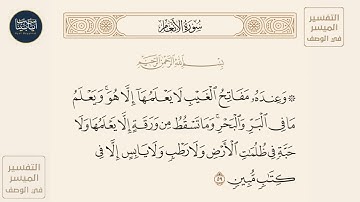 سُورَةُ الأَنْعَامِ
التفسير
الميسر
في الوصف
بِسْمِ ٱللَّهِ ٱلرَّحْمَٰنِ ٱلرَّحِيمِ
۞ وَعِندَهُۥ مَفَاتِحُ ٱلْغَيْبِ لَا يَعْلَمُهَآ إِلَّا هُوَۚ وَيَعْلَمُ
مَا فِى ٱلْبَرِّ وَٱلْبَحْرِۚ وَمَا تَسْقُطُ مِن وَرَقَةٍ إِلَّا يَعْلَمُهَا وَلَا
حَبَّةٍ فِى ظُلُمَٰتِ ٱلْأَرْضِ وَلَا رَطْبٍ وَلَا يَابِسٍ إِلَّا فِى
كِتَٰبٍ مُّبِينٍ ٥٩
التفسير
الميسر
في الوصف